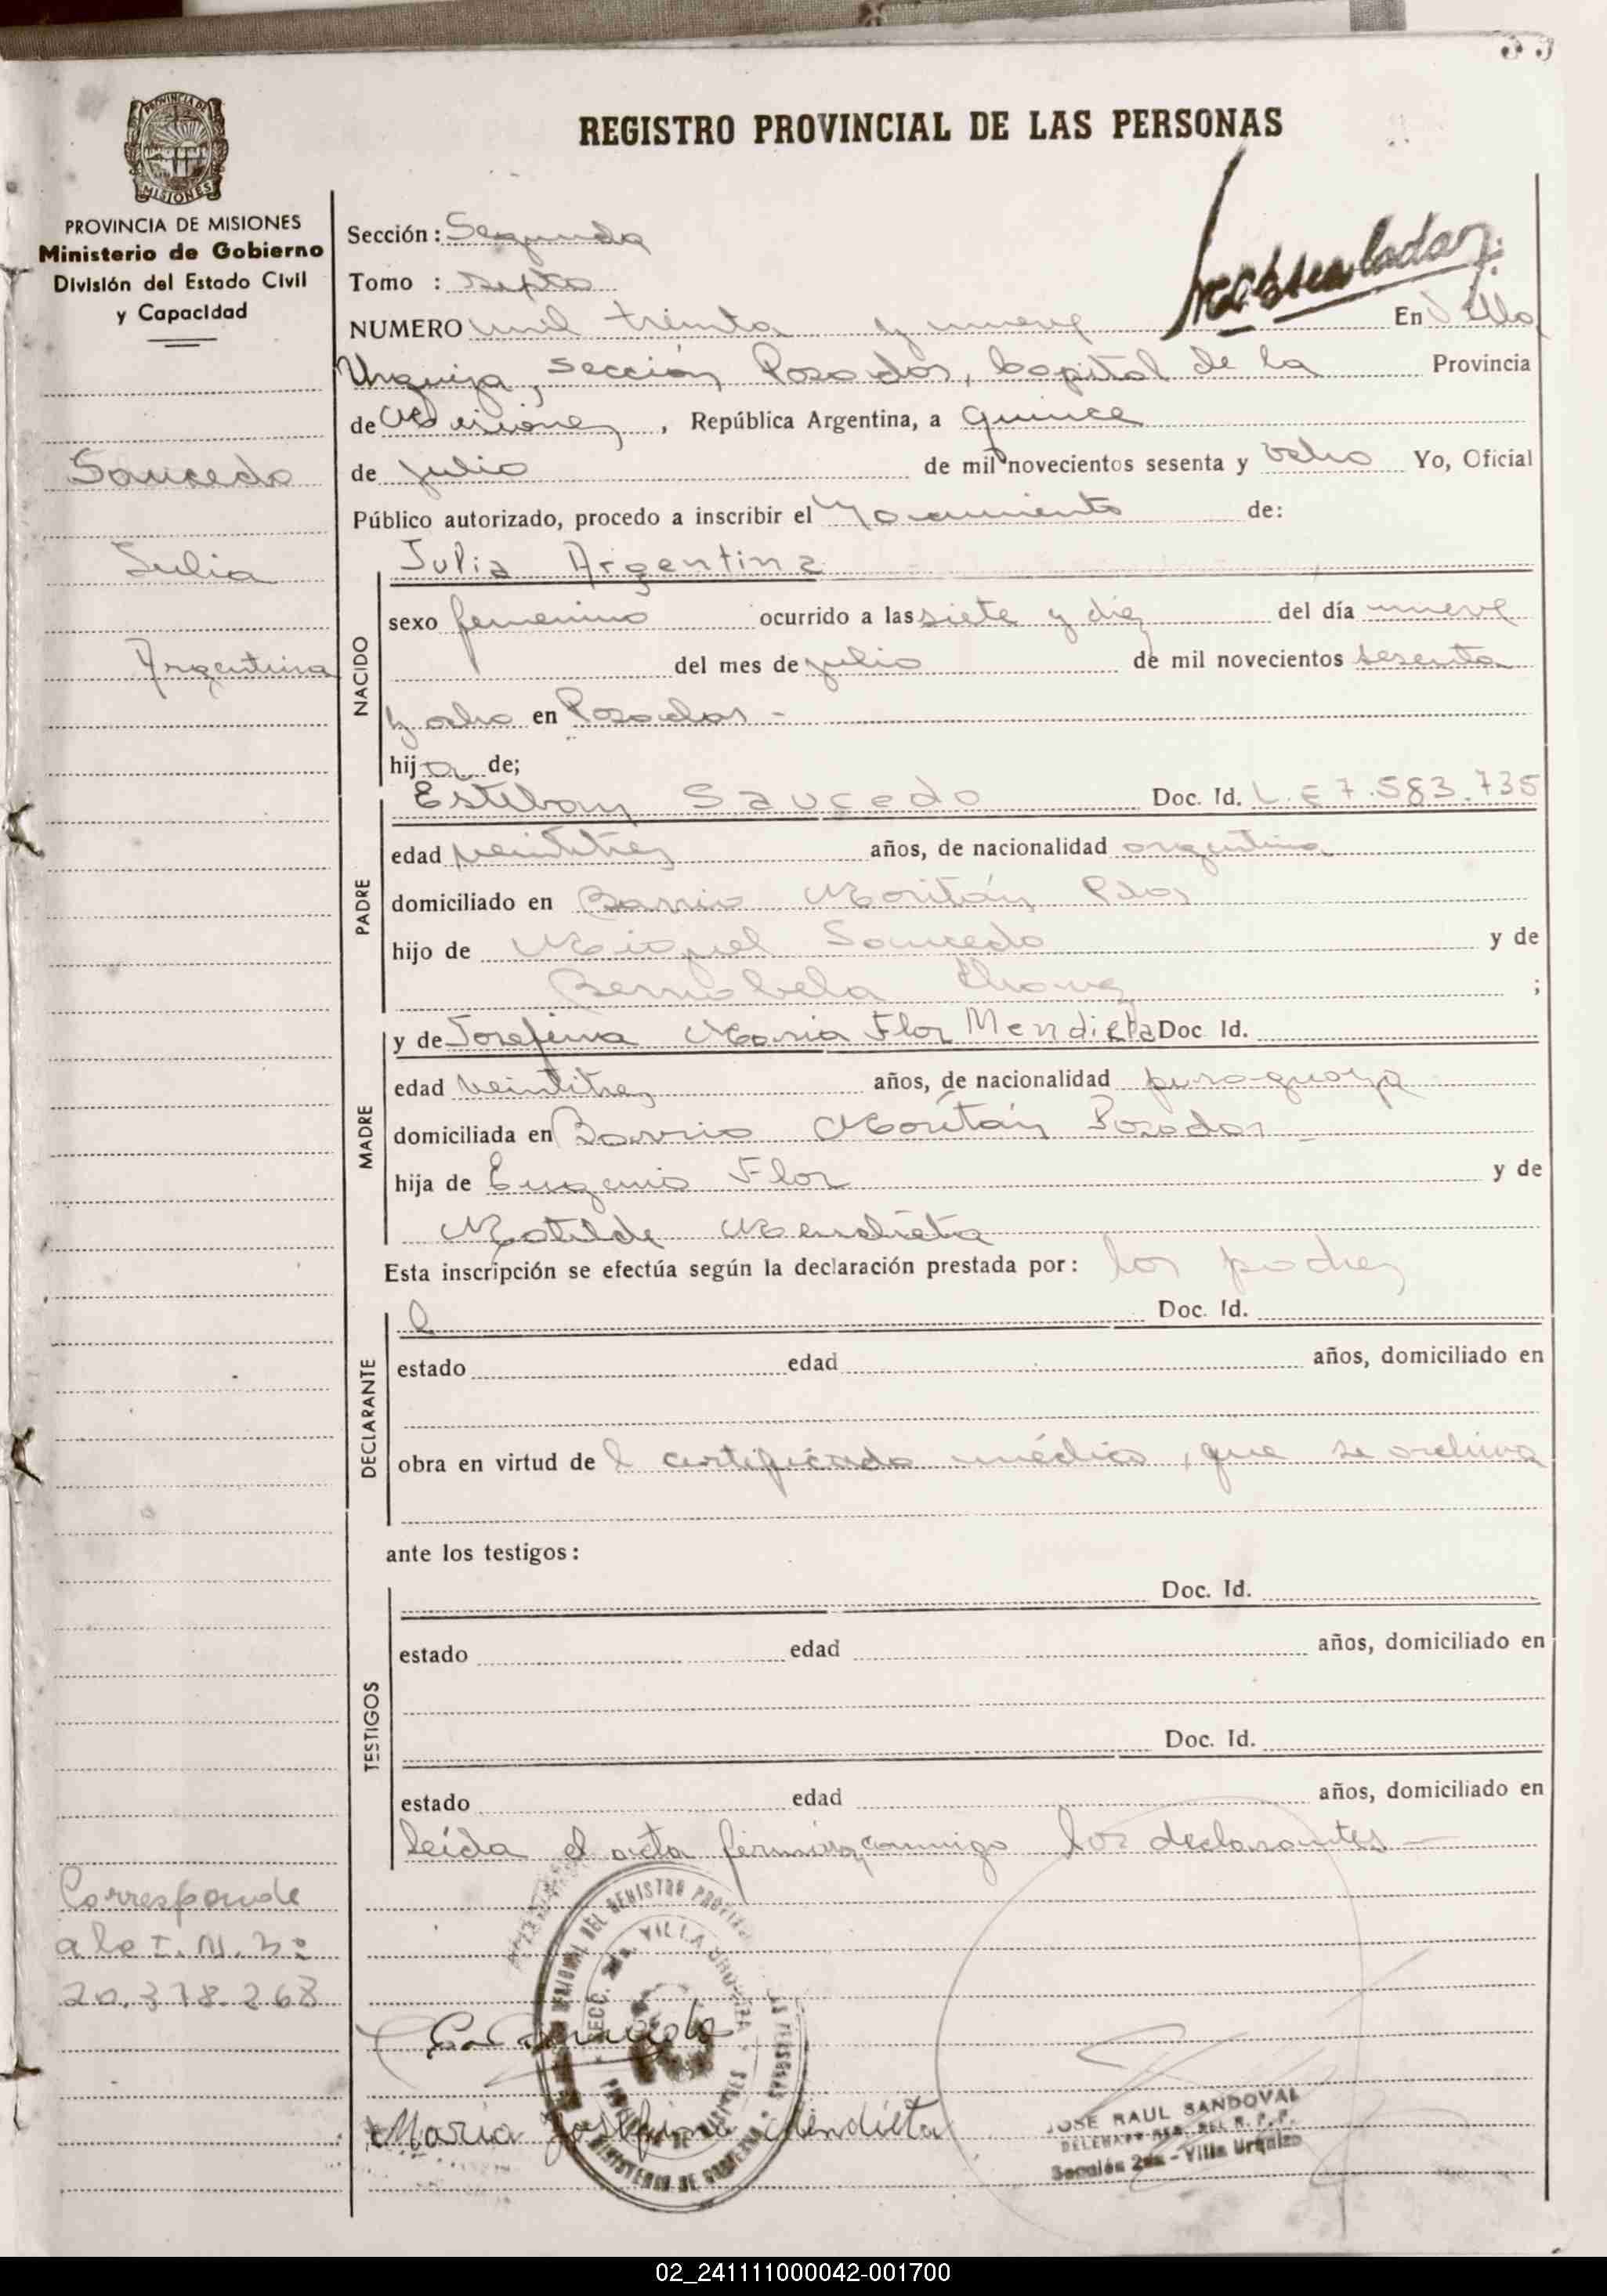 REGISTRO PROVINCIAL DE LAS PERSONAS
PROVINCIA DE
MISIONES
PROVINCIA DE MISIONES
Ministerio de Gobierno
División del Estado Civil
y Capacidad
Saucedo
Julia
Argentina
Corresponde
20.378.268
Sección: Segunda
Tomo :
NUMERO mil treinta y nueve En Villa
Urquiza, sección Posadas, Capital de la Provincia
de Misiones, República Argentina, a quince
de julio de mil novecientos sesenta y ocho Yo, Oficial
Público autorizado, procedo a inscribir el Nacimiento de:
Julia Argentina
NACIDO
sexo femenino ocurrido a las siete y diez del día nueve
del mes de julio de mil novecientos sesenta
y ocho en Posadas -
hija de;
PADRE
Esteban Saucedo Doc. Id. L.E 7.583.735
edad veintitres años, de nacionalidad argentina
domiciliado en Barrio Moritán Pdas
hijo de Miguel Saucedo y de
;
MADRE
y de Josefina Maria Flor Mendieta Doc Id.
edad veintitres años, de nacionalidad paraguaya
domiciliada en Barrio Moritán Posadas
hija de Eugenio Flor y de
Matilde Mendieta
Esta inscripción se efectúa según la declaración prestada por: los padres
DECLARANTE
Doc. Id.
estado edad años, domiciliado en
obra en virtud de certificado médico, que se archiva
ante los testigos:
TESTIGOS
Doc. Id.
estado edad años, domiciliado en
Doc. Id.
estado edad años, domiciliado en
Leída el acta firman conmigo los declarantes
Maria Josefina Mendieta
JOSE RAUL SANDOVAL
Sección 2da - Villa Urquiza
02_241111000042-001700